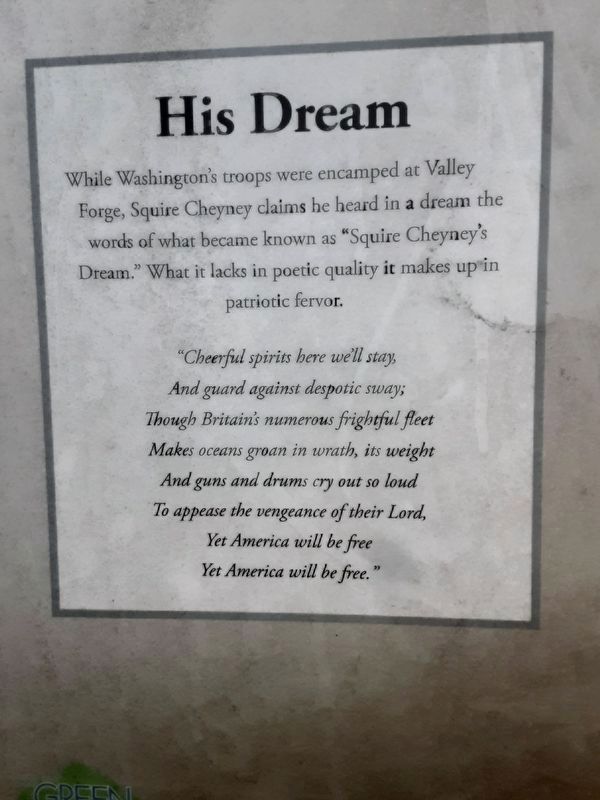 His Dream
While Washington's troops were encamped at Valley
Forge, Squire Cheyney claims he heard in a dream the
words of what became known as "Squire Cheyney's
Dream." What it lacks in poetic quality it makes up in
patriotic fervor.
"Cheerful spirits here we'll stay,
And guard against despotic sway;
Though Britain's numerous frightful fleet
Makes oceans groan in wrath, its weight
And guns and drums cry out so loud
To appease the vengeance of their Lord,
Yet America will be free
Yet America will be free."
GREEN